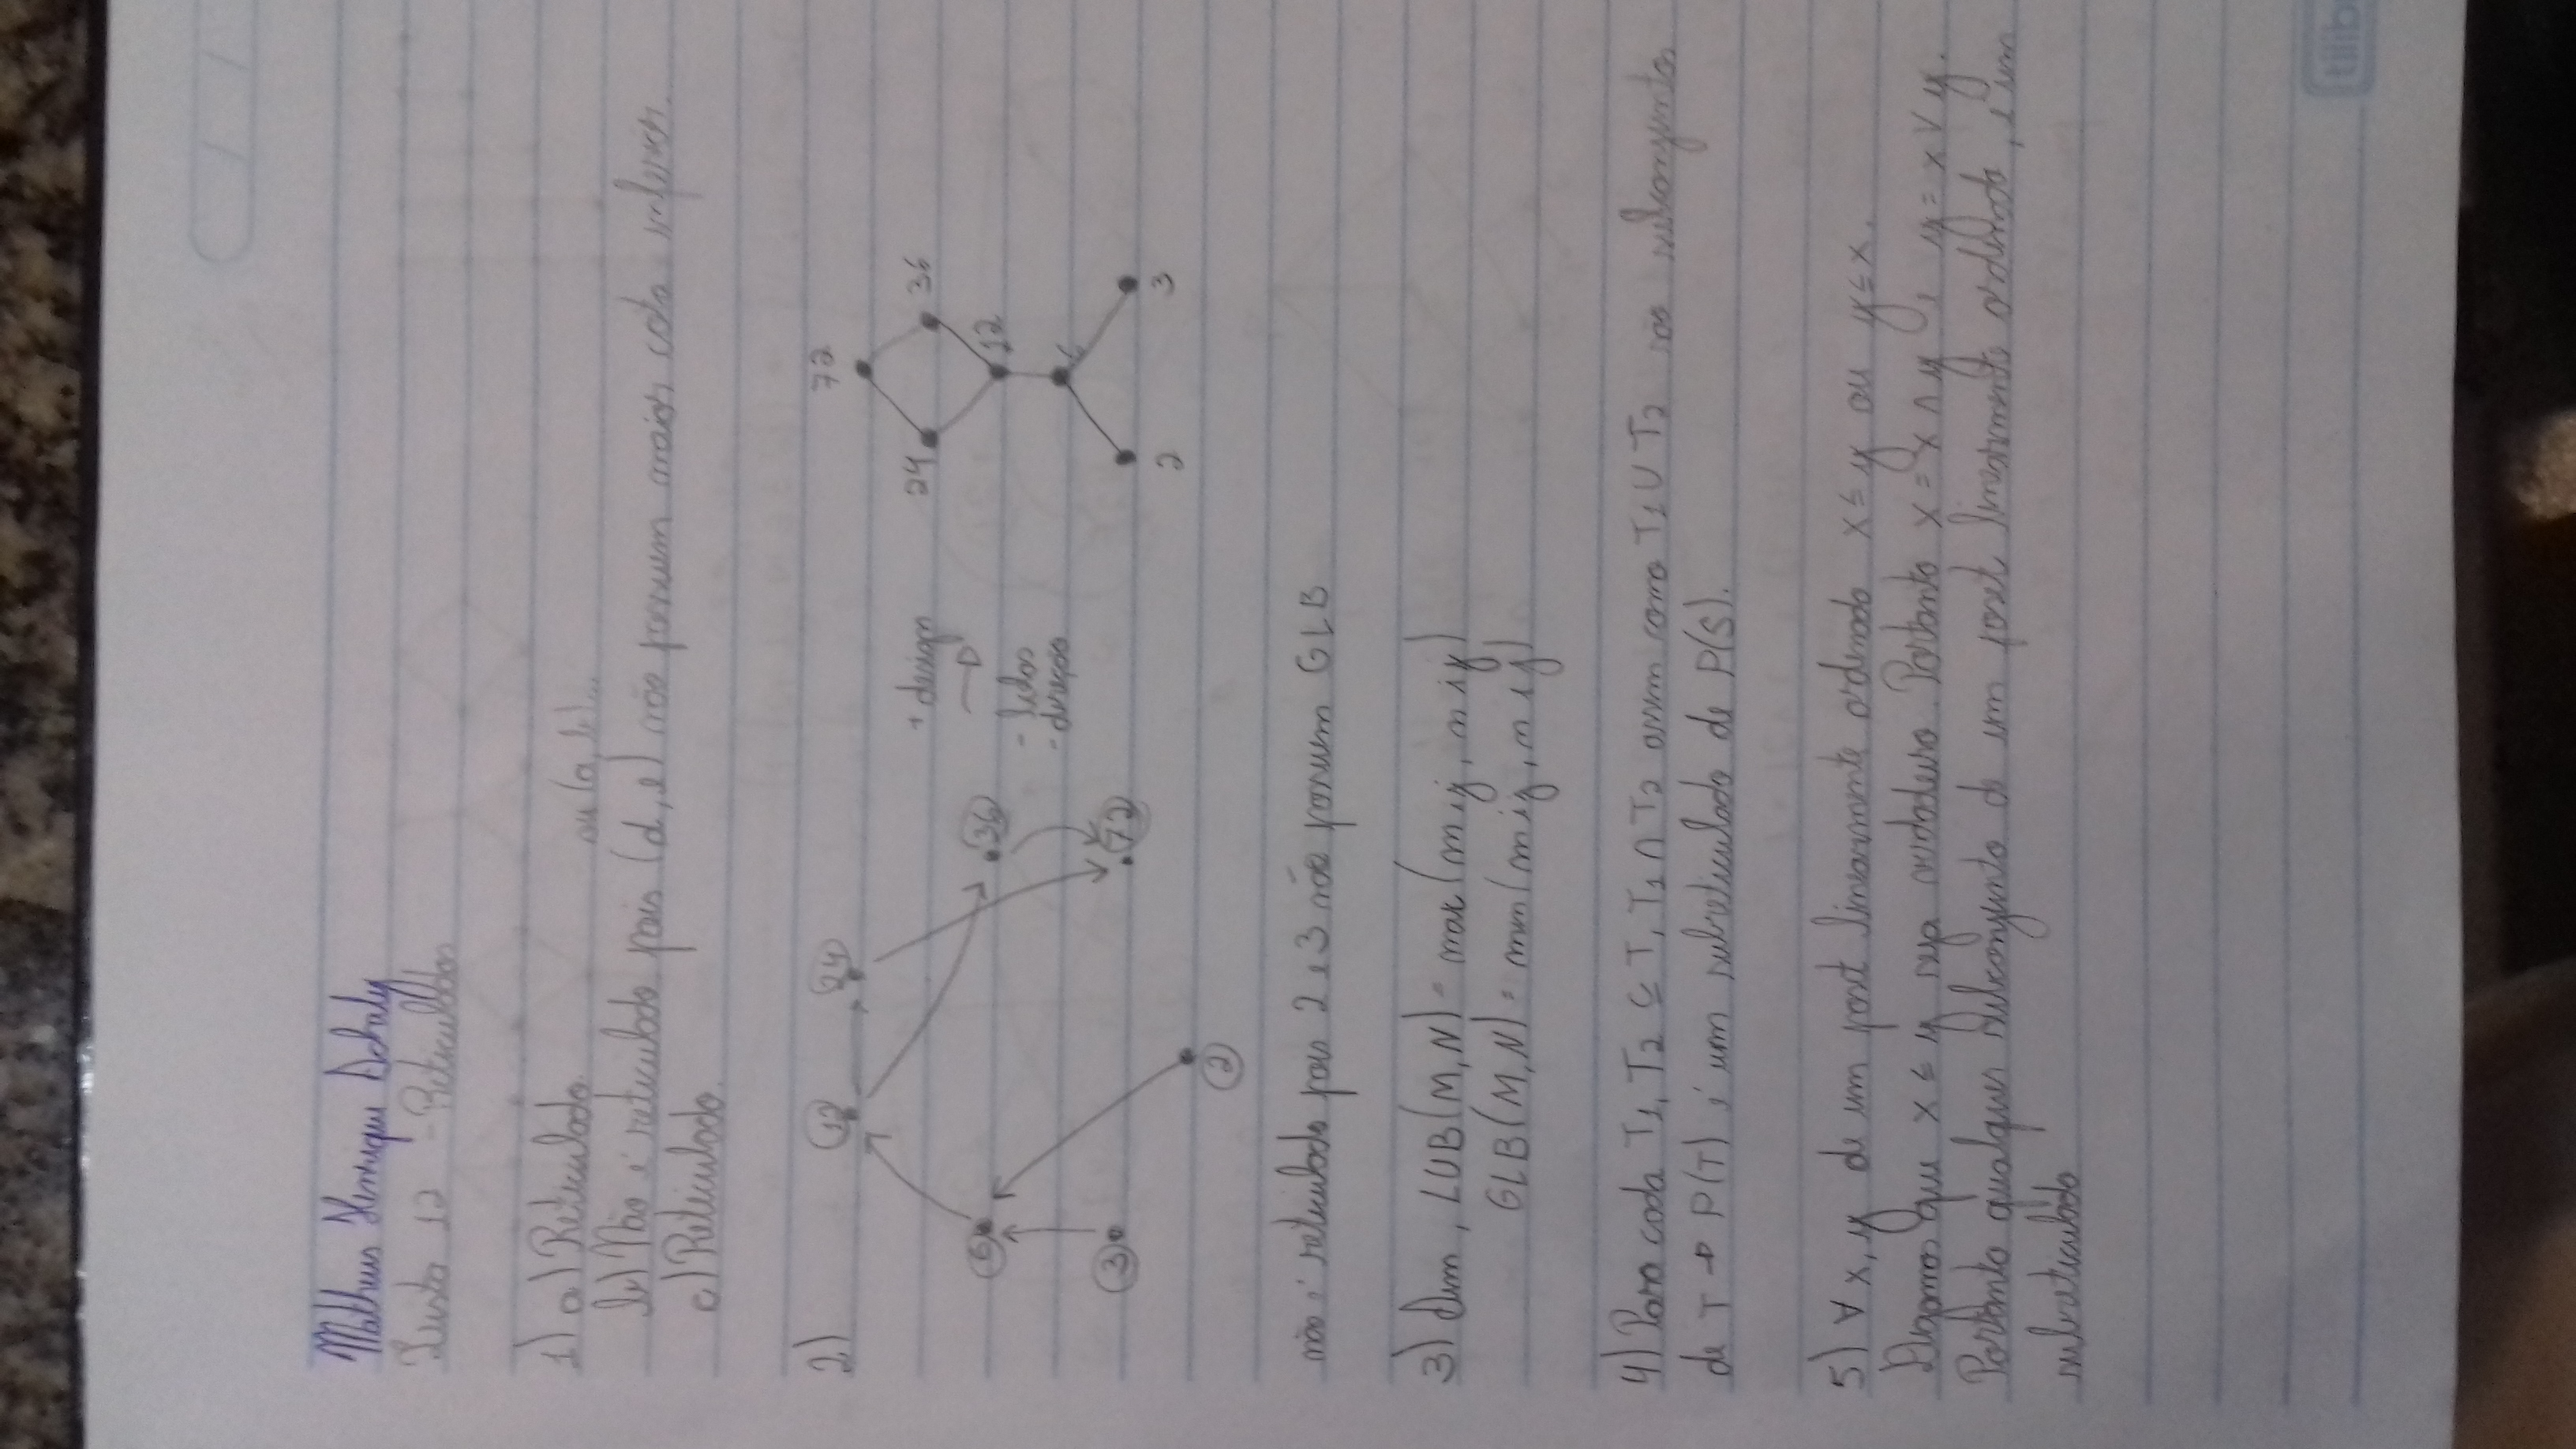 Matheus Henrique Schaly
Lista 12 - Reticulados
1) a) Reticulado.
ou (a, b)...
b) Não é reticulado pois (d, e) não possuem maior cota inferior.
c) Reticulado.
2)
12 24
6 36
3 72
2
+ design
- lulas
- direção
72
24 36
12
6
2 3
não é reticulado pois 2 e 3 não possuem GLB
3) Sim, LUB(M,N) = max(mij, nij)
GLB(M,N) = min(mij, nij)
4) Para cada T1, T2 ⊆ T, T1 ∩ T2 assim como T1 ∪ T2 são subconjuntos
de T → P(T) é um subreticulado de P(S).
5) ∀ x, y de um poset linearmente ordenado x ≤ y ou y ≤ x.
Digamos que x ≤ y seja verdadeiro. Portanto x = x ∧ y e y = x ∨ y.
Portanto qualquer subconjunto de um poset linearmente ordenado, é um
subreticulado
tilib